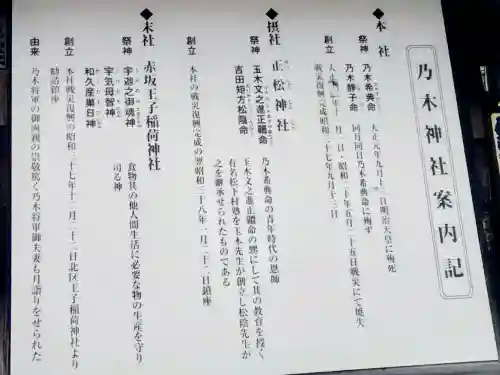 乃木神社案内記
◆本社
祭神 乃木希典命 大正元年九月十三日明治天皇に殉死
乃木静子命 同月同日乃木希典命に殉ず
創立 大正 年十一月一日・昭和二十年五月二十五日戦災にて焼失
戦災復興完成昭和三十七年九月十三日
◆摂社 正松神社
祭神 玉木文之進正韞命 乃木希典命の青年時代の恩師
吉田矩方松陰命 玉木文之進正韞命の甥にして其の教育を授く
有名松下村塾を玉木先生が創立し松陰先生が
之を継承せられたものである
創立 本社の戦災復興完成の翌昭和三十八年一月二十二日鎮座
◆末社 赤坂王子稲荷神社
祭神 宇迦之御魂神 食物其の他人間生活に必要な物の生産を守り
宇気母智神 司る神
和久産巣日神
創立 本社戦災復興の昭和三十七年十一月二十二日北区王子稲荷神社より
勧請鎮座
由来 乃木将軍の御両親の崇敬篤く乃木将軍御夫妻も月詣りをせられた